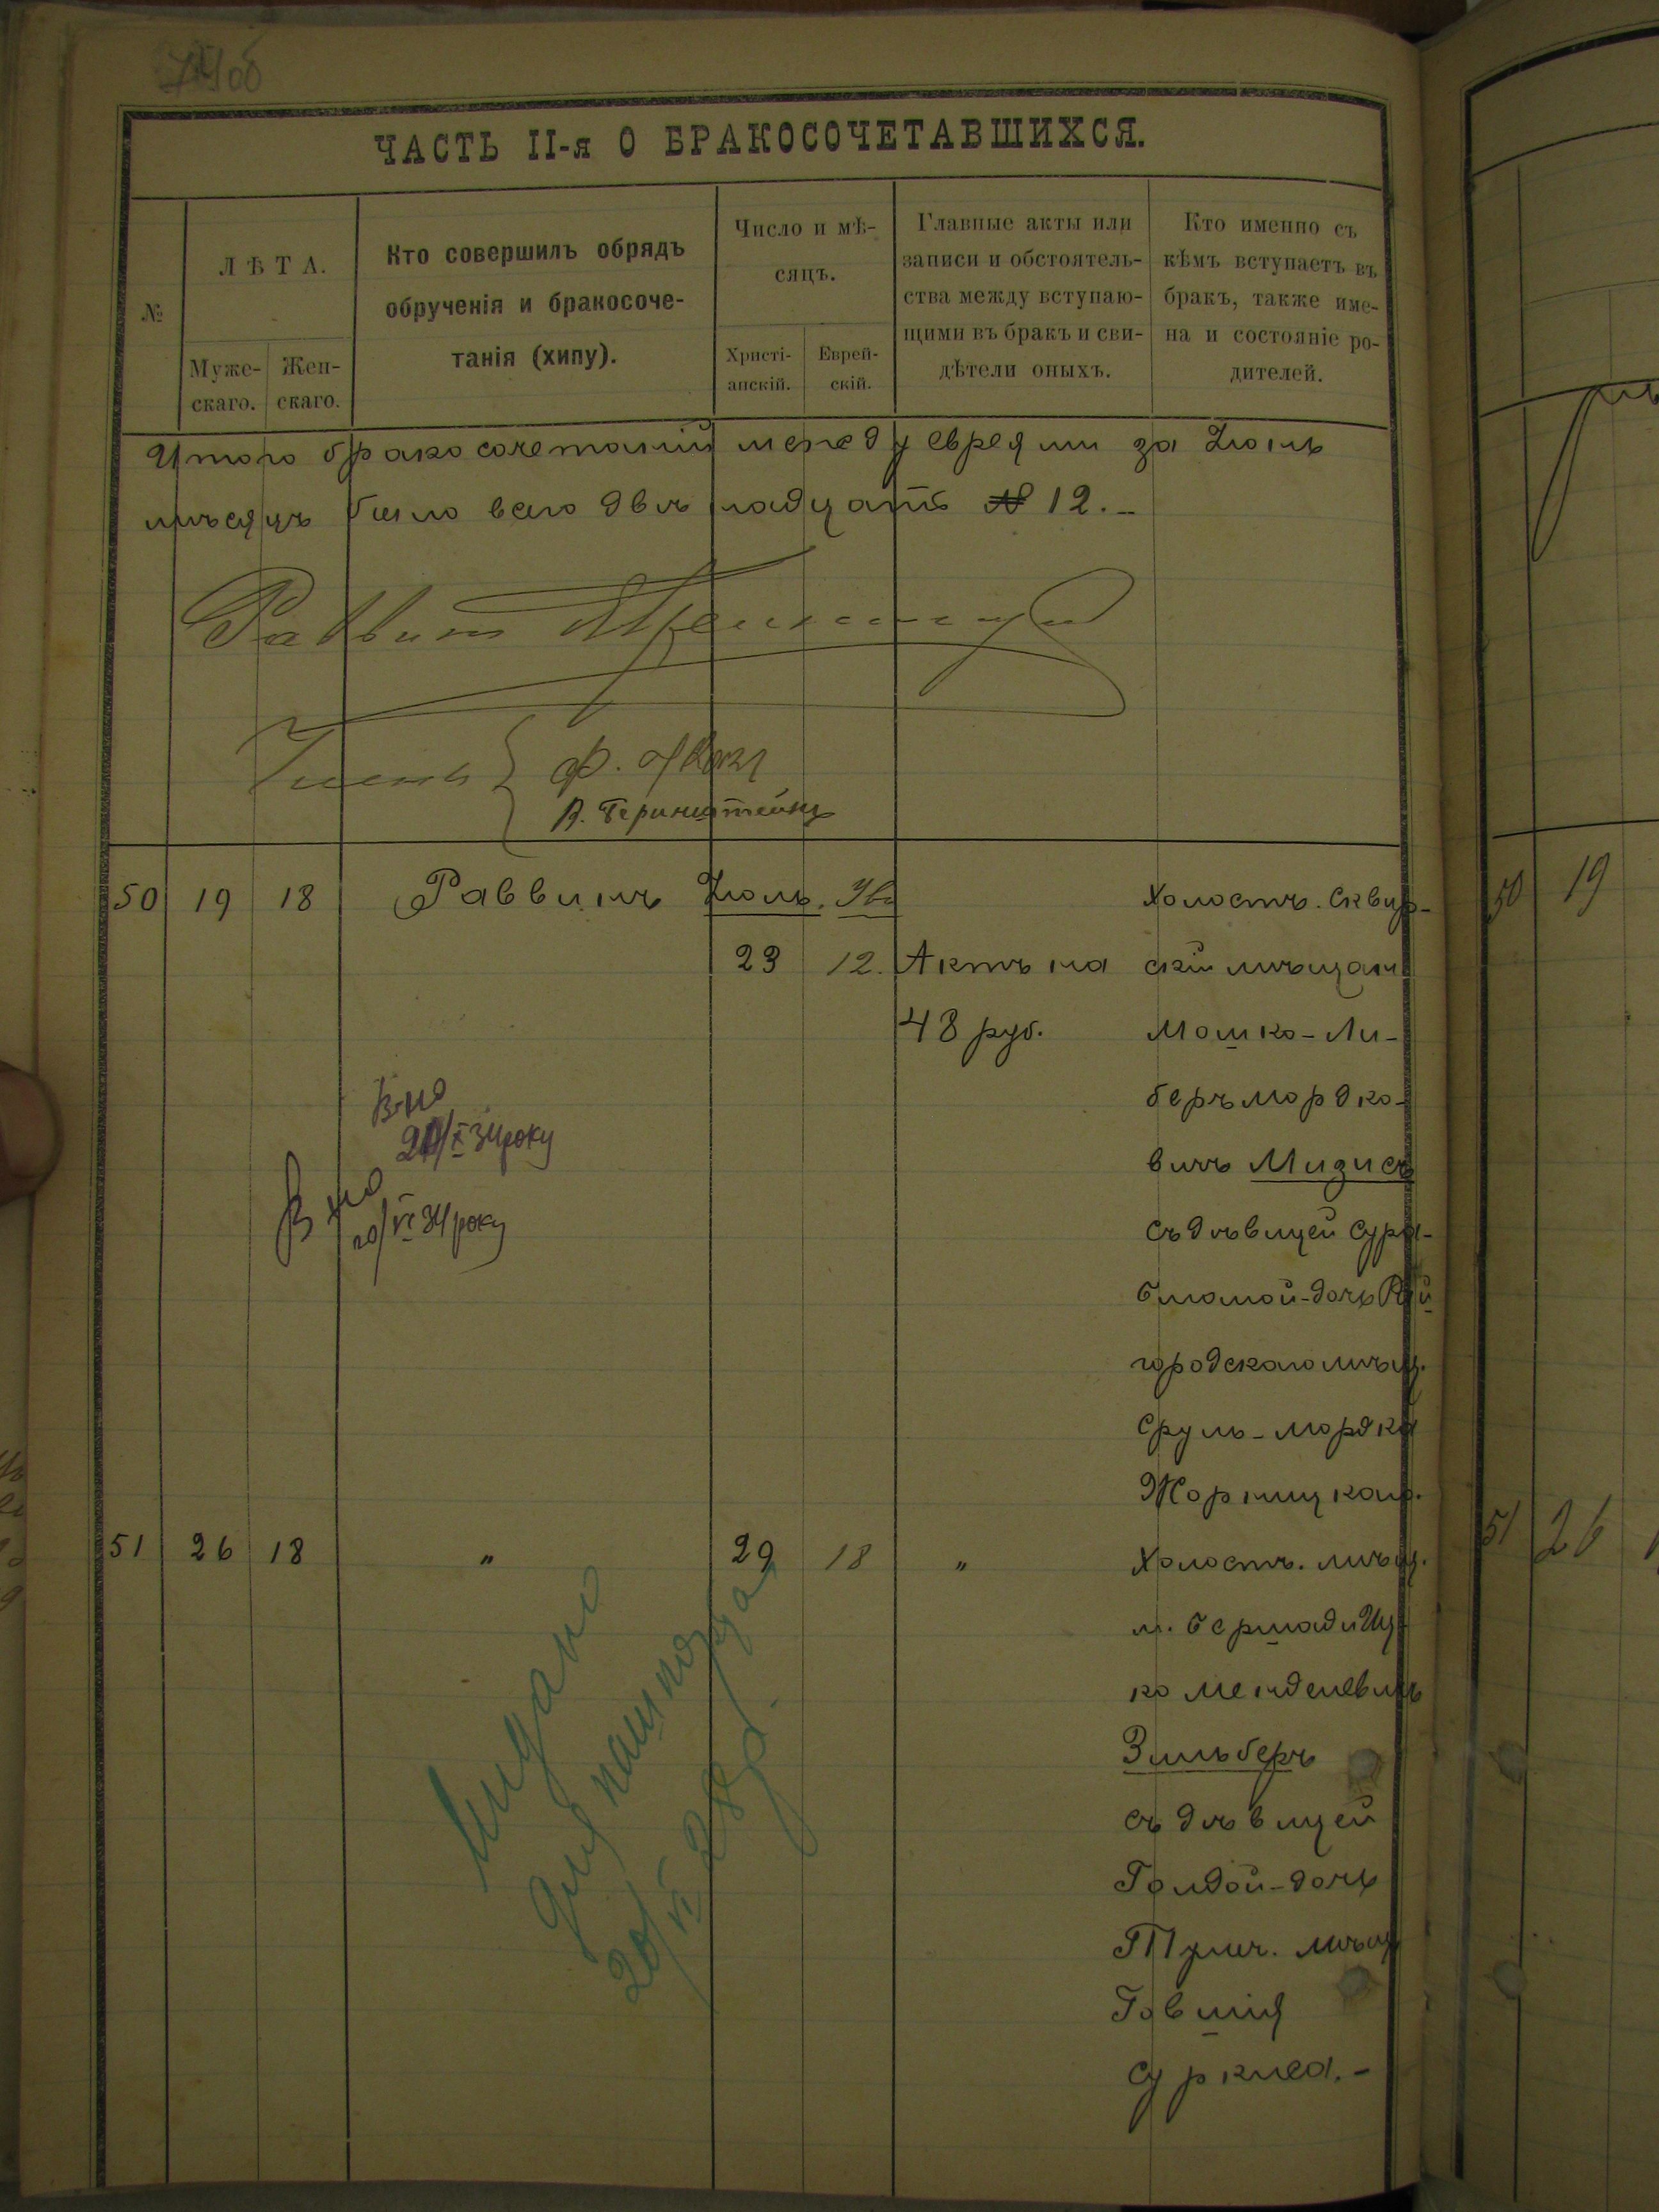 ЧАСТЬ II-я О БРАКОСОЧЕТАВШИХСЯ.
№
ЛѢТА.
Муже-
скаго.
Жен-
скаго.
Кто совершилъ обрядъ
обрученія и бракосоче-
танія (хипу).
Число и мѣ-
сяцъ.
Христі-
анскій.
Еврей-
скій.
Главные акты или
записи и обстоятель-
ства между вступаю-
щими въ бракъ и сви-
дѣтели оныхъ.
Кто именно съ
кѣмъ вступаетъ въ
бракъ, также име-
на и состояніе ро-
дителей.
Итого бракосочетаній между евреями за Іюнь
мѣсяцъ было всего двѣнадцать № 12.-
Раввинъ
Члены
В. Беринштейнъ
50 19 18 Раввинъ Іюль.
23 12. Актъ на
48 руб.
Холостъ. Сквир-
скій мѣщан.
Мошко-Ли-
беръ Мордко-
вичъ Мизисъ
съ дѣвицей Сура-
Бламой-дочь
городскаго мѣщ.
Сруль-Мордка
Жорницкаго.
51 26 18 " 29 18 "
Холостъ. мѣщ.
м. Бершади Иц-
ко Менделевичъ
Зильберъ
съ дѣвицей
Голдой-дочь
мѣщ.
Говшія
Суркиса.-
20/X 34 року
20/VI 34 року
Видано
для пашпорта
20/VI 28 р.
50 19
51 26